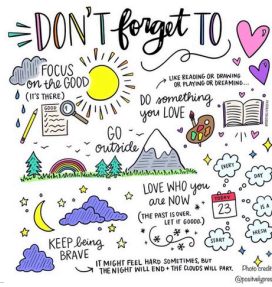 DON'T forget TO
FOCUS
on the GOOD
(IT'S THERE)
GOOD
LIKE READING OR DRAWING
OR PLAYING OR DREAMING...
DO something
you LOVE
GO
outside
LOVE WHO you
are NOW
(THE PAST IS OVER.
LET IT GOOOO.)
EVERY
DAY
IS A
FRESH
START
TODAY
23
KEEP being
BRAVE
IT MIGHT FEEL HARD SOMETIMES, BUT
THE NIGHT WILL END + THE CLOUDS WILL PART.
Photo credit